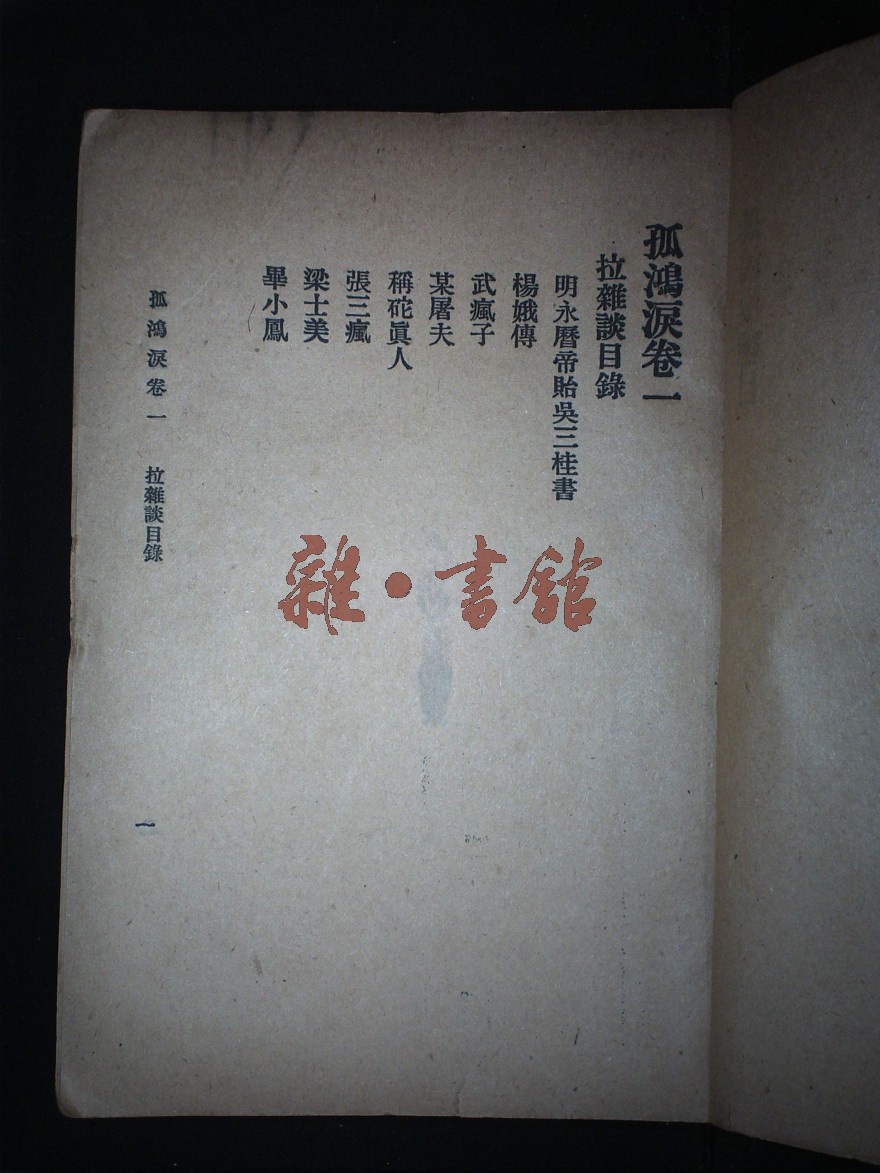 孤鴻淚卷一
拉雜談目錄
明永曆帝貽吳三桂書
楊娥傳
武瘋子
某屠夫
稱砣眞人
張三瘋
梁士美
畢小鳳
孤鴻淚卷一 拉雜談目錄 一
雜·書館